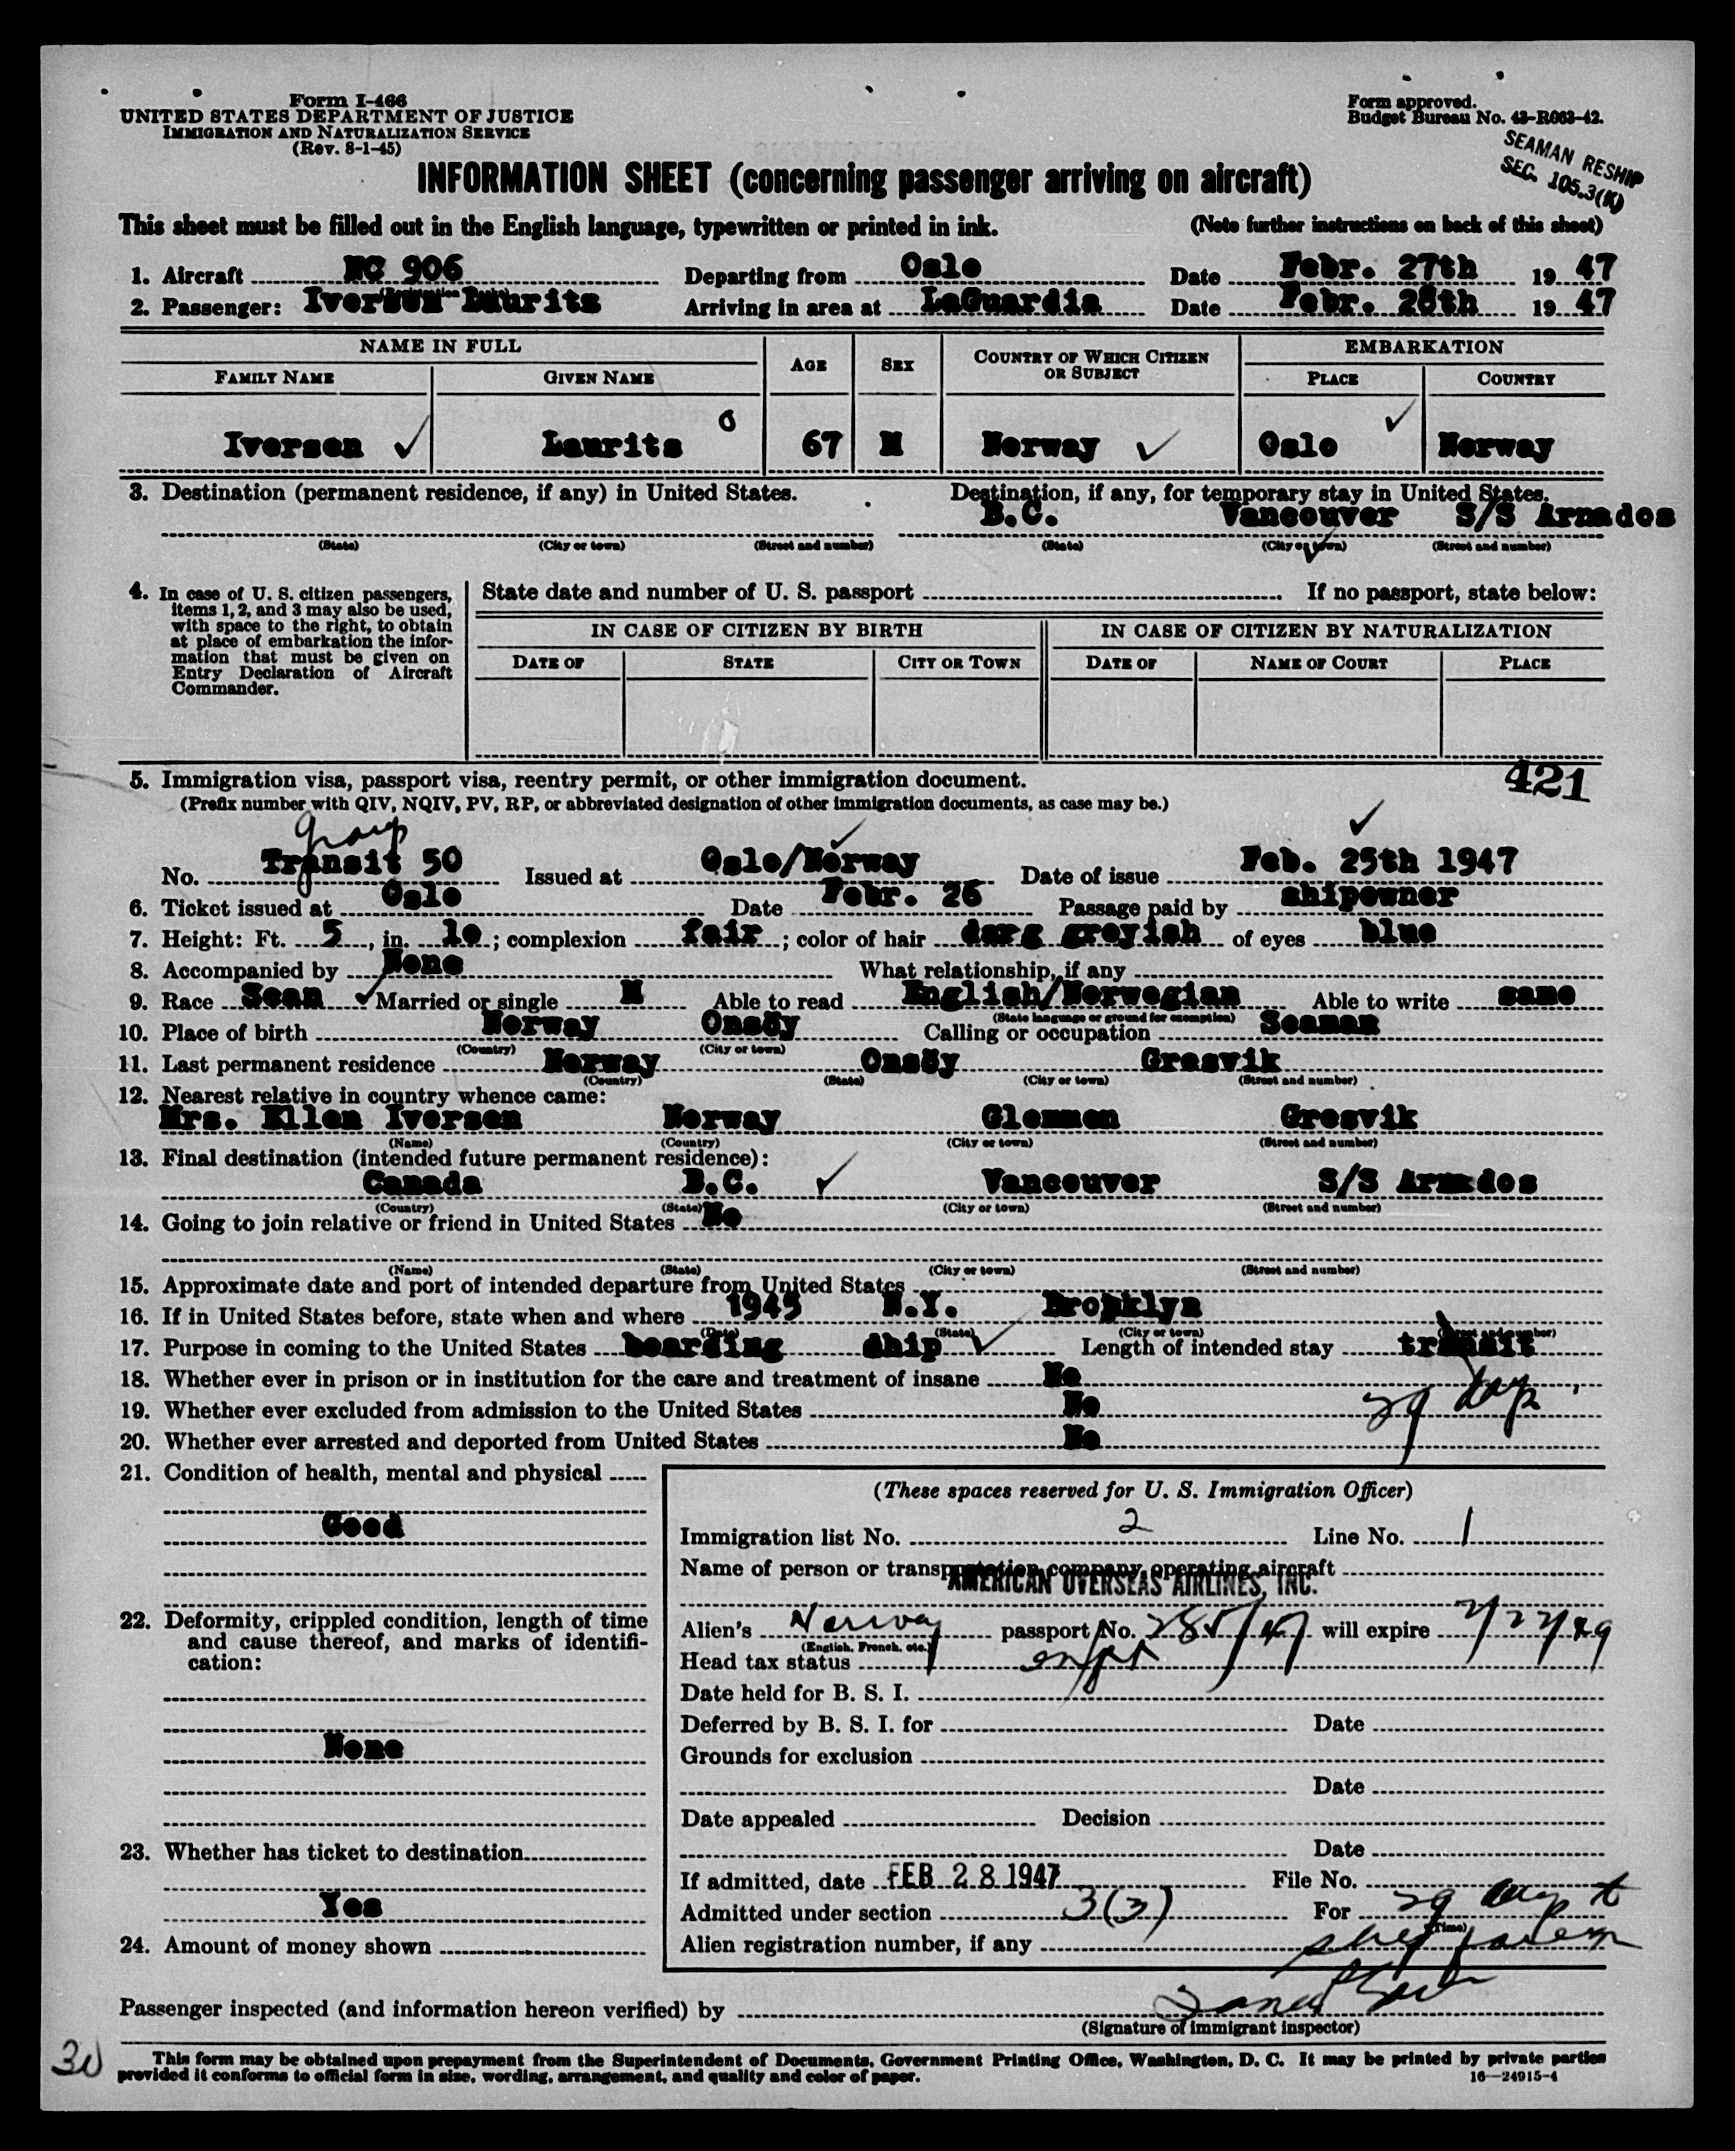 Form I-466
UNITED STATES DEPARTMENT OF JUSTICE
IMMIGRATION AND NATURALIZATION SERVICE
(Rev. 8-1-45)
Form approved.
Budget Bureau No. 43-R063-42.
SEAMAN RESHIP
SEC. 105.3(K)
INFORMATION SHEET (concerning passenger arriving on aircraft)
This sheet must be filled out in the English language, typewritten or printed in ink. (Note further instructions on back of this sheet)
1. Aircraft NC 906 Departing from Oslo Date Febr. 27th 1947
2. Passenger: Iversen Laurits Arriving in area at LaGuardia Date Febr. 28th 1947
NAME IN FULL AGE SEX COUNTRY OF WHICH CITIZEN OR SUBJECT EMBARKATION
FAMILY NAME GIVEN NAME PLACE COUNTRY
Iversen Laurits 67 M Norway Oslo Norway
3. Destination (permanent residence, if any) in United States. Destination, if any, for temporary stay in United States.
B.C. Vancouver S/S Arnados
(State) (City or town) (Street and number) (State) (City or town) (Street and number)
4. In case of U. S. citizen passengers, items 1, 2, and 3 may also be used, with space to the right, to obtain at place of embarkation the information that must be given on Entry Declaration of Aircraft Commander.
State date and number of U. S. passport If no passport, state below:
IN CASE OF CITIZEN BY BIRTH IN CASE OF CITIZEN BY NATURALIZATION
DATE OF STATE CITY OR TOWN DATE OF NAME OF COURT PLACE
421
5. Immigration visa, passport visa, reentry permit, or other immigration document.
(Prefix number with QIV, NQIV, PV, RP, or abbreviated designation of other immigration documents, as case may be.)
group
No. Transit 50 Issued at Oslo/Norway Date of issue Feb. 25th 1947
6. Ticket issued at Oslo Date Febr. 26 Passage paid by shipowner
7. Height: Ft. 5, in. 10; complexion fair; color of hair darg greyish of eyes blue
8. Accompanied by None What relationship, if any
9. Race Scan Married or single M Able to read English/Norwegian Able to write same
(State language or ground for exemption)
10. Place of birth Norway Onsöy Calling or occupation Seaman
(Country) (City or town)
11. Last permanent residence Norway Onsöy Gresvik
(Country) (State) (City or town) (Street and number)
12. Nearest relative in country whence came:
Mrs. Ellen Iversen Norway Glemmen Gresvik
(Name) (Country) (City or town) (Street and number)
13. Final destination (intended future permanent residence):
Canada B.C. Vancouver S/S Arnados
(Country) (State) (City or town) (Street and number)
14. Going to join relative or friend in United States No
(Name) (State) (City or town) (Street and number)
15. Approximate date and port of intended departure from United States
16. If in United States before, state when and where 1945 N.Y. Brooklyn
(Date) (State) (City or town) (Street and number)
17. Purpose in coming to the United States boarding ship Length of intended stay transit
29 days
18. Whether ever in prison or in institution for the care and treatment of insane No
19. Whether ever excluded from admission to the United States No
20. Whether ever arrested and deported from United States No
21. Condition of health, mental and physical
Good
22. Deformity, crippled condition, length of time and cause thereof, and marks of identification:
None
23. Whether has ticket to destination
Yes
24. Amount of money shown
(These spaces reserved for U. S. Immigration Officer)
Immigration list No. 2 Line No. 1
Name of person or transportation company operating aircraft
AMERICAN OVERSEAS AIRLINES, INC.
Alien's Norway passport No. 285/47 will expire 2/22/49
(English, French, etc.)
Head tax status
Date held for B. S. I.
Deferred by B. S. I. for Date
Grounds for exclusion
Date
Date appealed Decision
Date
If admitted, date FEB 28 1947 File No.
Admitted under section 3(3) For 29 days t
(Time)
Alien registration number, if any
Passenger inspected (and information hereon verified) by
(Signature of immigrant inspector)
30
This form may be obtained upon prepayment from the Superintendent of Documents, Government Printing Office, Washington, D. C. It may be printed by private parties
provided it conforms to official form in size, wording, arrangement, and quality and color of paper.
16—24915-4